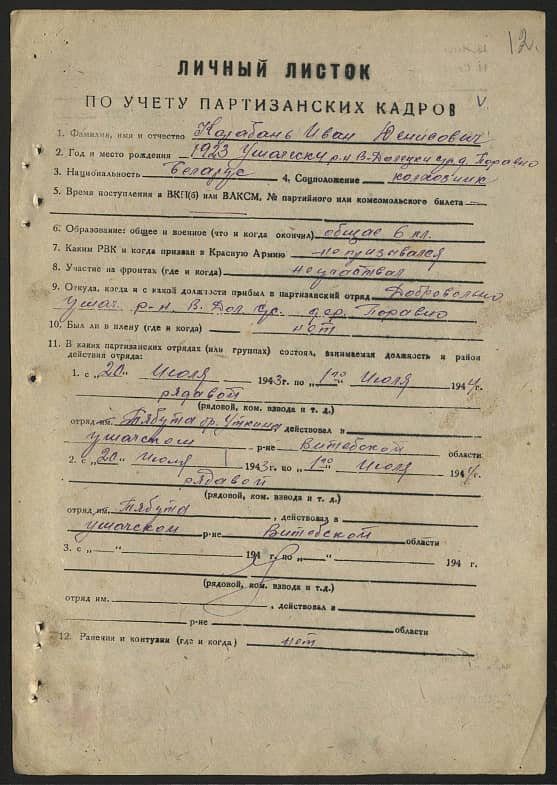 12.
ЛИЧНЫЙ ЛИСТОК
ПО УЧЕТУ ПАРТИЗАНСКИХ КАДРОВ V.
1. Фамилия, имя и отчество Карабань Иван Денисович
2. Год и место рождения 1923 Ушачский р-н В-Долецки с/с д. Поравно
3. Национальность беларус 4. Соцположение колхозник
5. Время поступления в ВКП(б) или ВЛКСМ, № партийного или комсомольского билета —
6. Образование: общее и военное (что и когда окончил) общее 6 кл.
7. Каким РВК и когда призван в Красную Армию не призывался
8. Участие на фронтах (где и когда) не участвал
9. Откуда, когда и с какой должности прибыл в партизанский отряд Добровольно
Ушач. р-н. В. Дол с/с. дер. Поравно
10. Был ли в плену (где и когда) нет
11. В каких партизанских отрядах (или группах) состоял, занимаемая должность и район
действия отряда:
1. с „20" Июля 1943 г. по „1го" Июля 1944 г.
рядавой
(рядовой, ком. взвода и т. д.)
отряд им. Тябута бр. Уткина, действовал в
ушачском р-не Витебской области
2. с „20" Июля 1943 г. по „1го" Июля 1944 г.
рядавой
(рядовой, ком. взвода и т. д.)
отряд им. Тябута, действовал в
ушачском р-не Витебской области
3. с „—" 194 г. по „—" 194 г.
(рядовой, ком. взвода и т.д.)
отряд им. , действовал в
р-не области
12. Ранения и контузии (где и когда) нет